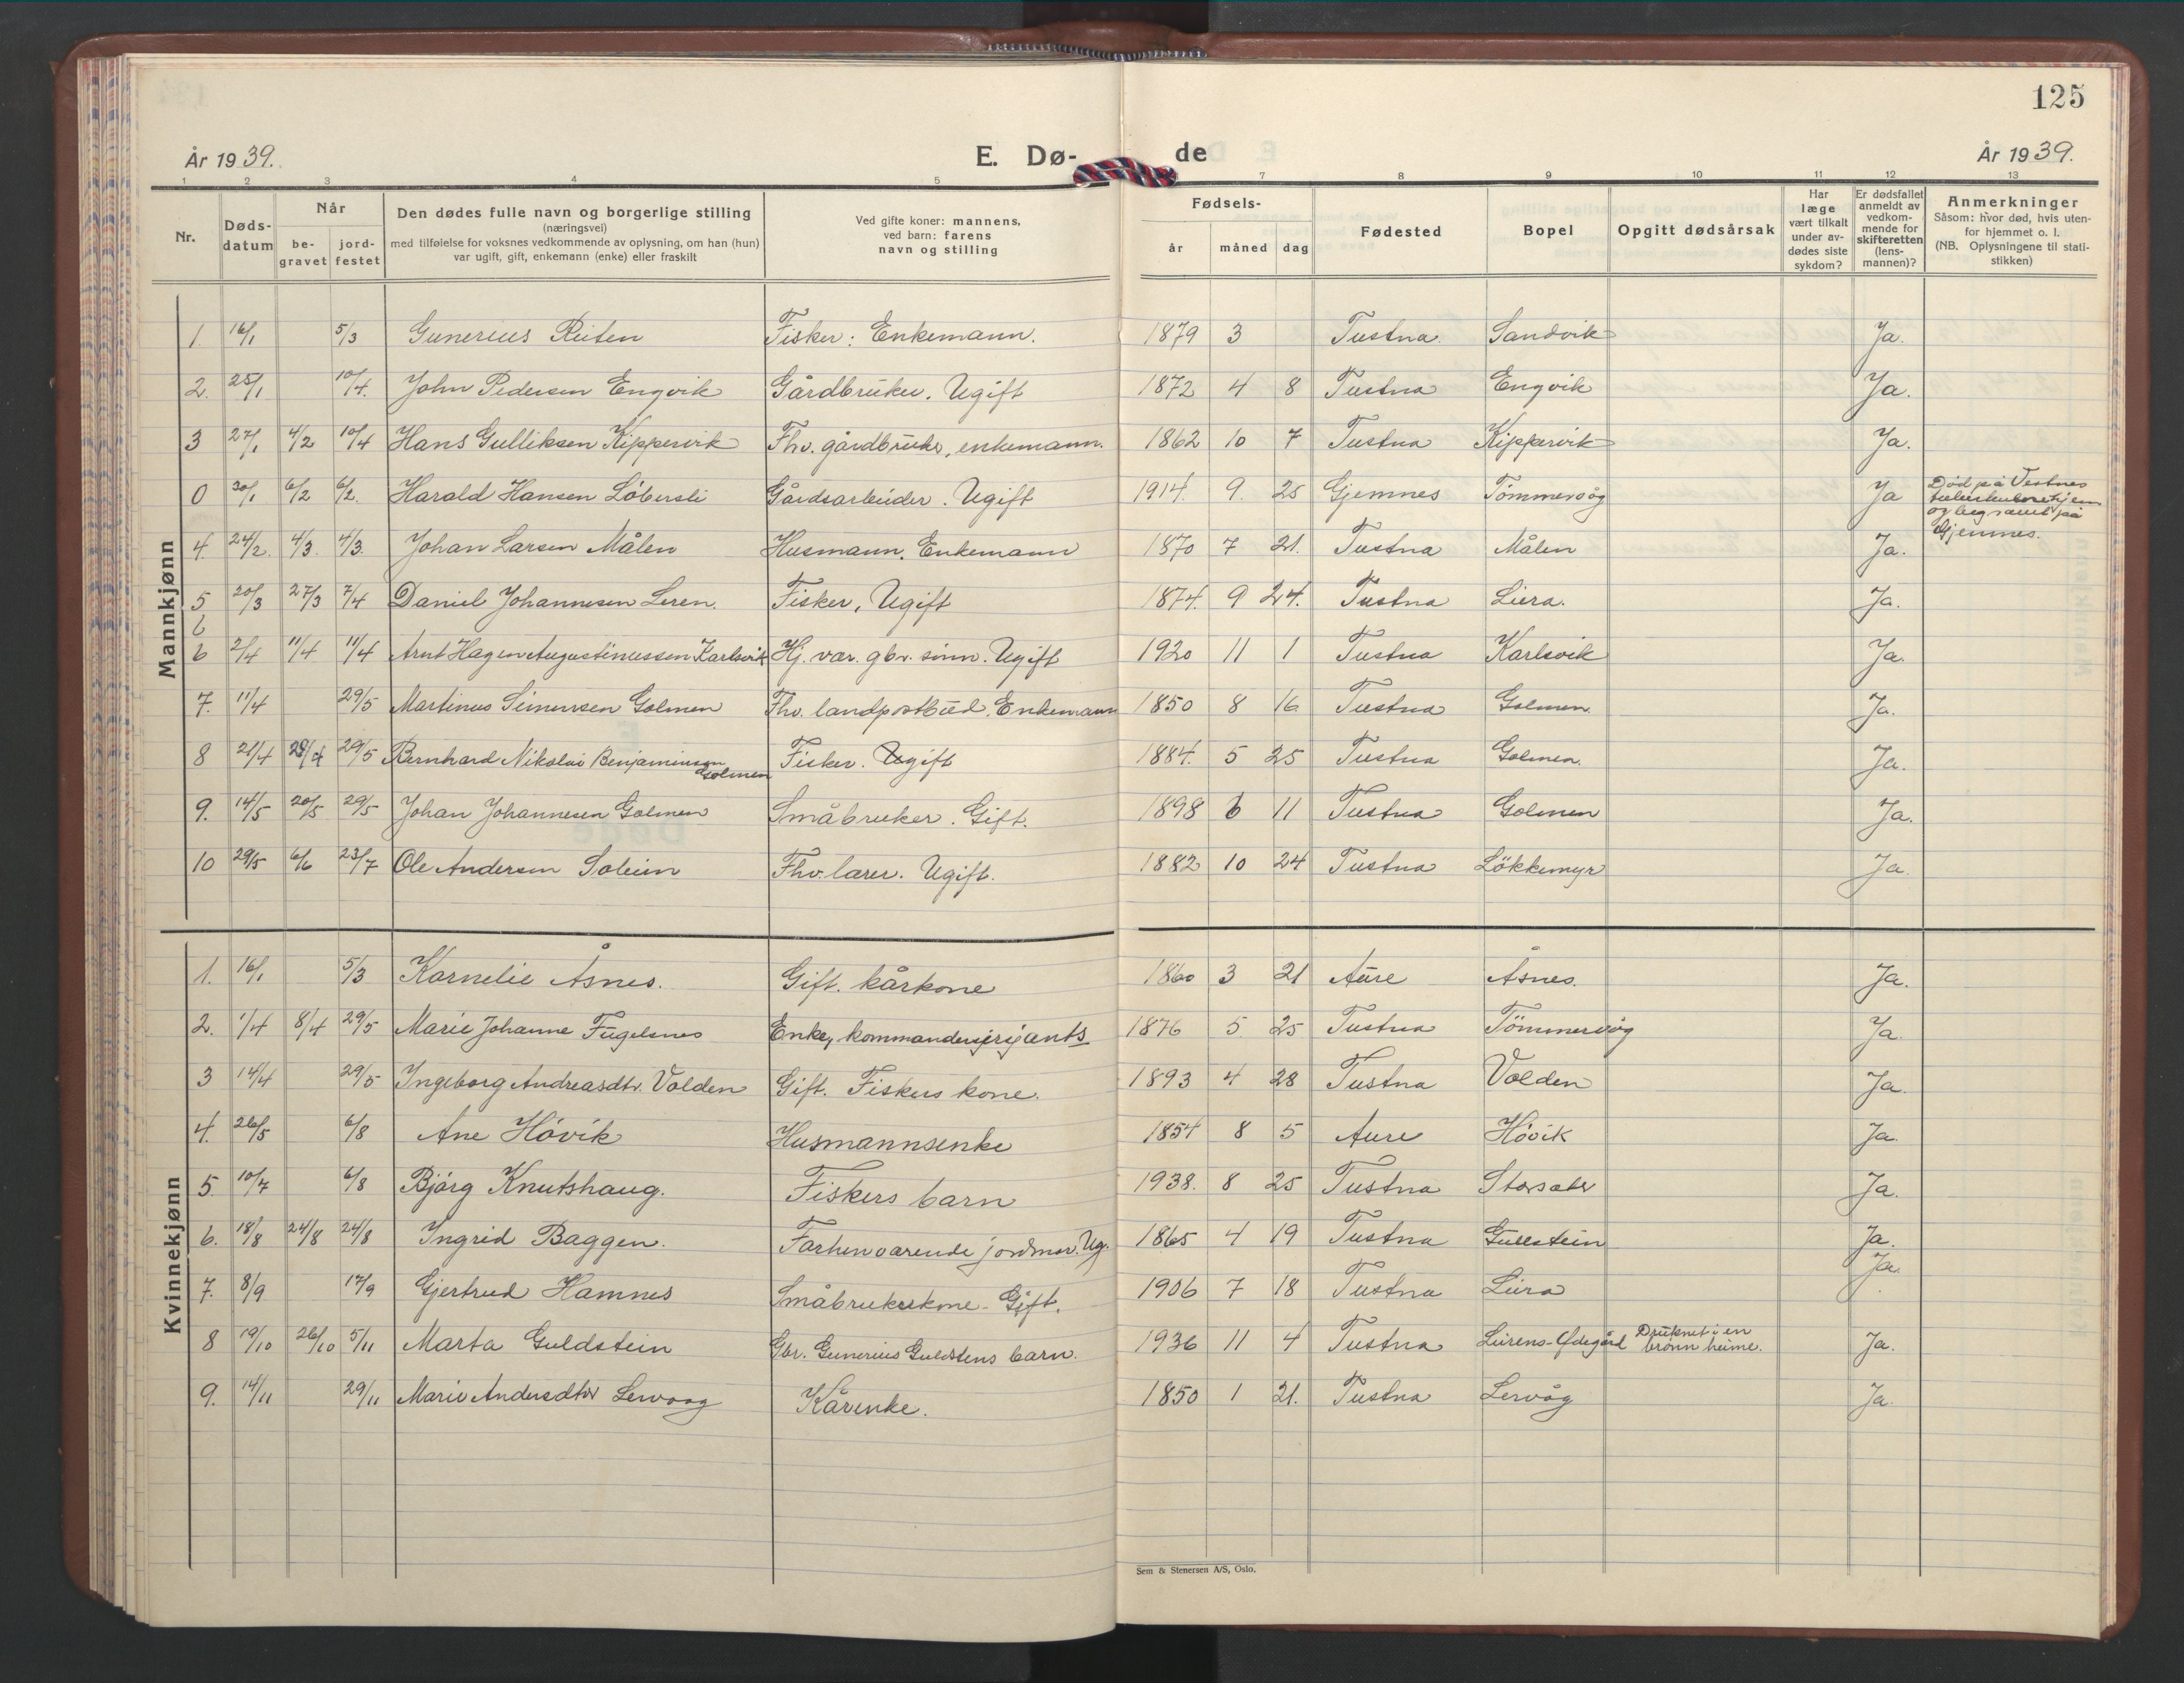 125
År 1939.
E. Dø-
de
År 1939.
1 2 3 4 5 7 8 9 10 11 12 13
Nr.
Døds-
datum
Når
be-
gravet
jord-
festet
Den dødes fulle navn og borgerlige stilling
(næringsvei)
med tilføielse for voksnes vedkommende av oplysning, om han (hun)
var ugift, gift, enkemann (enke) eller fraskilt
Ved gifte koner: mannens,
ved barn: farens
navn og stilling
Fødsels-
år måned dag
Fødested
Bopel
Opgitt dødsårsak
Har
læge
vært tilkalt
under av-
dødes siste
sykdom?
Er dødsfallet
anmeldt av
vedkom-
mende for
skifteretten
(lens-
mannen)?
Anmerkninger
Såsom: hvor død, hvis uten-
for hjemmet o. l.
(NB. Oplysningene til stati-
stikken)
Mannkjønn
1. 16/1 5/3 Gunerius Reiten Fisker: Enkemann. 1879 3 Tustna. Sandvik Ja.
2. 25/1 10/4. John Pedersen Engvik Gårdbruker. Ugift 1872 4 8 Tustna Engvik Ja.
3 27/1 4/2 10/4 Hans Gulliksen Kippervik Fhv. gårdbruker, enkemann. 1862 10 7 Tustna Kippervik Ja.
0 30/1 6/2 6/2. Harald Hansen Löbersli Gårdsarbeider. Ugift 1914. 9. 25 Gjemnes Tömmervåg Ja Död på Vestnes
tuberkulosehjem
og begravet på
Gjemnes.
4. 24/2. 4/3. 4/3. Johan Larsen Målen Husmann. Enkemann 1870 7 21. Tustna Målen Ja.
5 20/3 27/3 7/4 Daniel Johannesen Leren. Fisker, Ugift 1874. 9 24. Tustna Leira. Ja.
6
6 2/4 11/4 11/4 Arnt Hagen Augustinussen Karlsvik Hj. vær. gbr. sönn. Ugift 1920 11 1 Tustna Karlsvik Ja.
7. 11/4 29/5 Martinus Simensen Golmen Fhv. landpostbud. Enkemann 1850 8 16 Tustna Golmen. Ja.
8 21/4 28/4 29/5 Bernhard Nikolai Benjaminsen
Golmen Fisker. Ugift 1884. 5 25 Tustna Golmen. Ja.
9. 14/5 20/5 29/5 Johan Johannesen Golmen Småbruker. Gift. 1898 6 11 Tustna Golmen Ja.
10 29/5 6/6 23/7 Ole Andersen Soleim Fhv. lærer. Ugift. 1882 10 24 Tustna Lökkemyr Ja.
Kvinnekjønn
1. 16/1 5/3 Kornelie Åsnes. Gift. kårkone 1860 3 21 Aure Åsnes. Ja.
2. 1/4 8/4 29/5 Marie Johanne Fugelsnes Enke, kommandersersjants 1876 5. 25 Tustna Tömmervåg Ja.
3 14/4 29/5 Ingeborg Andreasdtr. Volden Gift. Fiskers kone. 1893 4 28 Tustna Volden Ja.
4. 26/5 6/8 Ane Hövik Husmannsenke 1854 8 5 Aure Hövik Ja.
5. 10/7 6/8 Bjørg Knutshaug. Fiskers barn 1938. 8 25 Tustna Storsæter Ja.
6. 18/8 24/8 24/8 Ingrid Baggen. Forhenværende jordmor. Ug. 1865 4 19 Tustna Gullstein Ja.
7. 8/9 17/9 Gjertrud Hamnes Småbrukerkone. Gift. 1906 7 18 Tustna Leira Ja.
8 19/10 26/10 5/11 Marta Guldstein Gbr. Gunerius Guldsteins barn. 1936 11 4 Tustna Leirens-Ødegård Druknet i en
brönn heime. Ja.
9. 14/11 29/11 Marie Andersdtr Lervaag Kårenke. 1850 1 21. Tustna Lervåg Ja.
Sem & Stenersen A/S, Oslo.